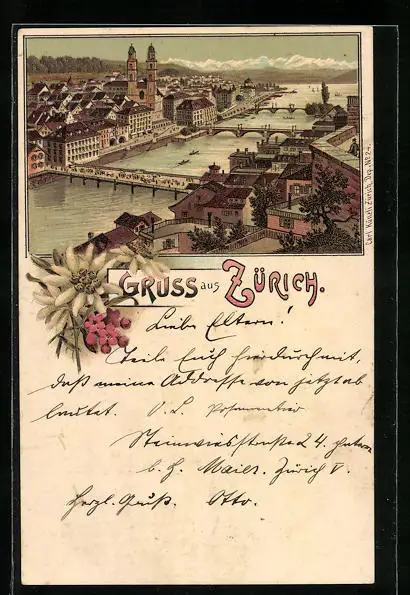 Carl Künzli Zürich, Dép. № 24.
GRUSS aus ZÜRICH.
Liebe Eltern!
Teile Euch hierdurch mit,
daß meine Addresse von jetzt ab
lautet. O. L.
Steinwiesstrasse 24.
b. H. Maier. Zürich V.
Herzl. Gruß. Otto.